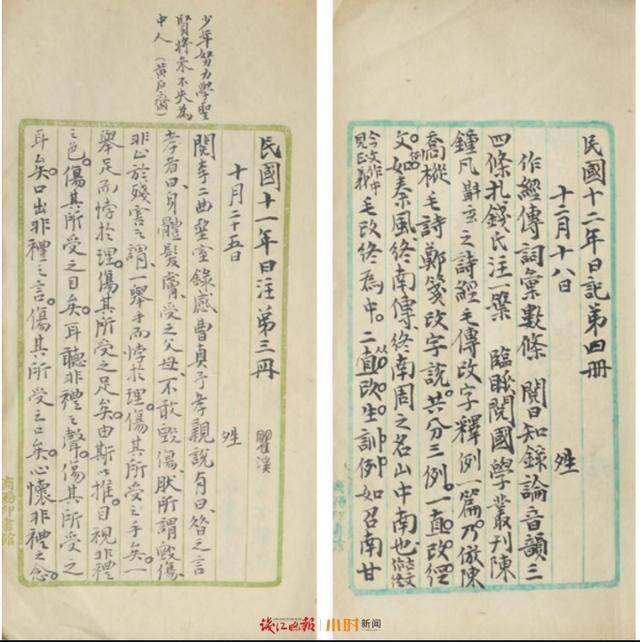 少年努力學聖
賢將來不失為
中人（黃石齋）
民國十一年日注第三冊 瞿溪
十月二十五日 姓
閱李二曲堊室錄感曹貞予孝親說有曰昔之言
孝者曰身體髮膚受之父母不敢毀傷肰所謂毀傷
非止於殘害之謂一舉手而悖於理傷其所受之手矣一
舉足而悖於理傷其所受之足矣由斯以推目視非禮
之色傷其所受之目矣耳聽非禮之聲傷其所受之
耳矣口出非禮之言傷其所受之口矣心懷非禮之念
商務印書館
民國十二年日記第四冊
十二月十八日 姓
作經傳詞彙數條 閱日知錄論音韻三
四條札錢氏注一葉 臨睡閱國學叢刊陳
鐘凡斠玄之詩經毛傳改字釋例一篇乃倣陳
喬樅毛詩鄭箋改字說共分三例一直改經
文如秦風終南傳終南周之名山中南也
今文作中見正義毛改終為中二直改生訓例如召南甘
商務印書館
钱江晚报 小时新闻